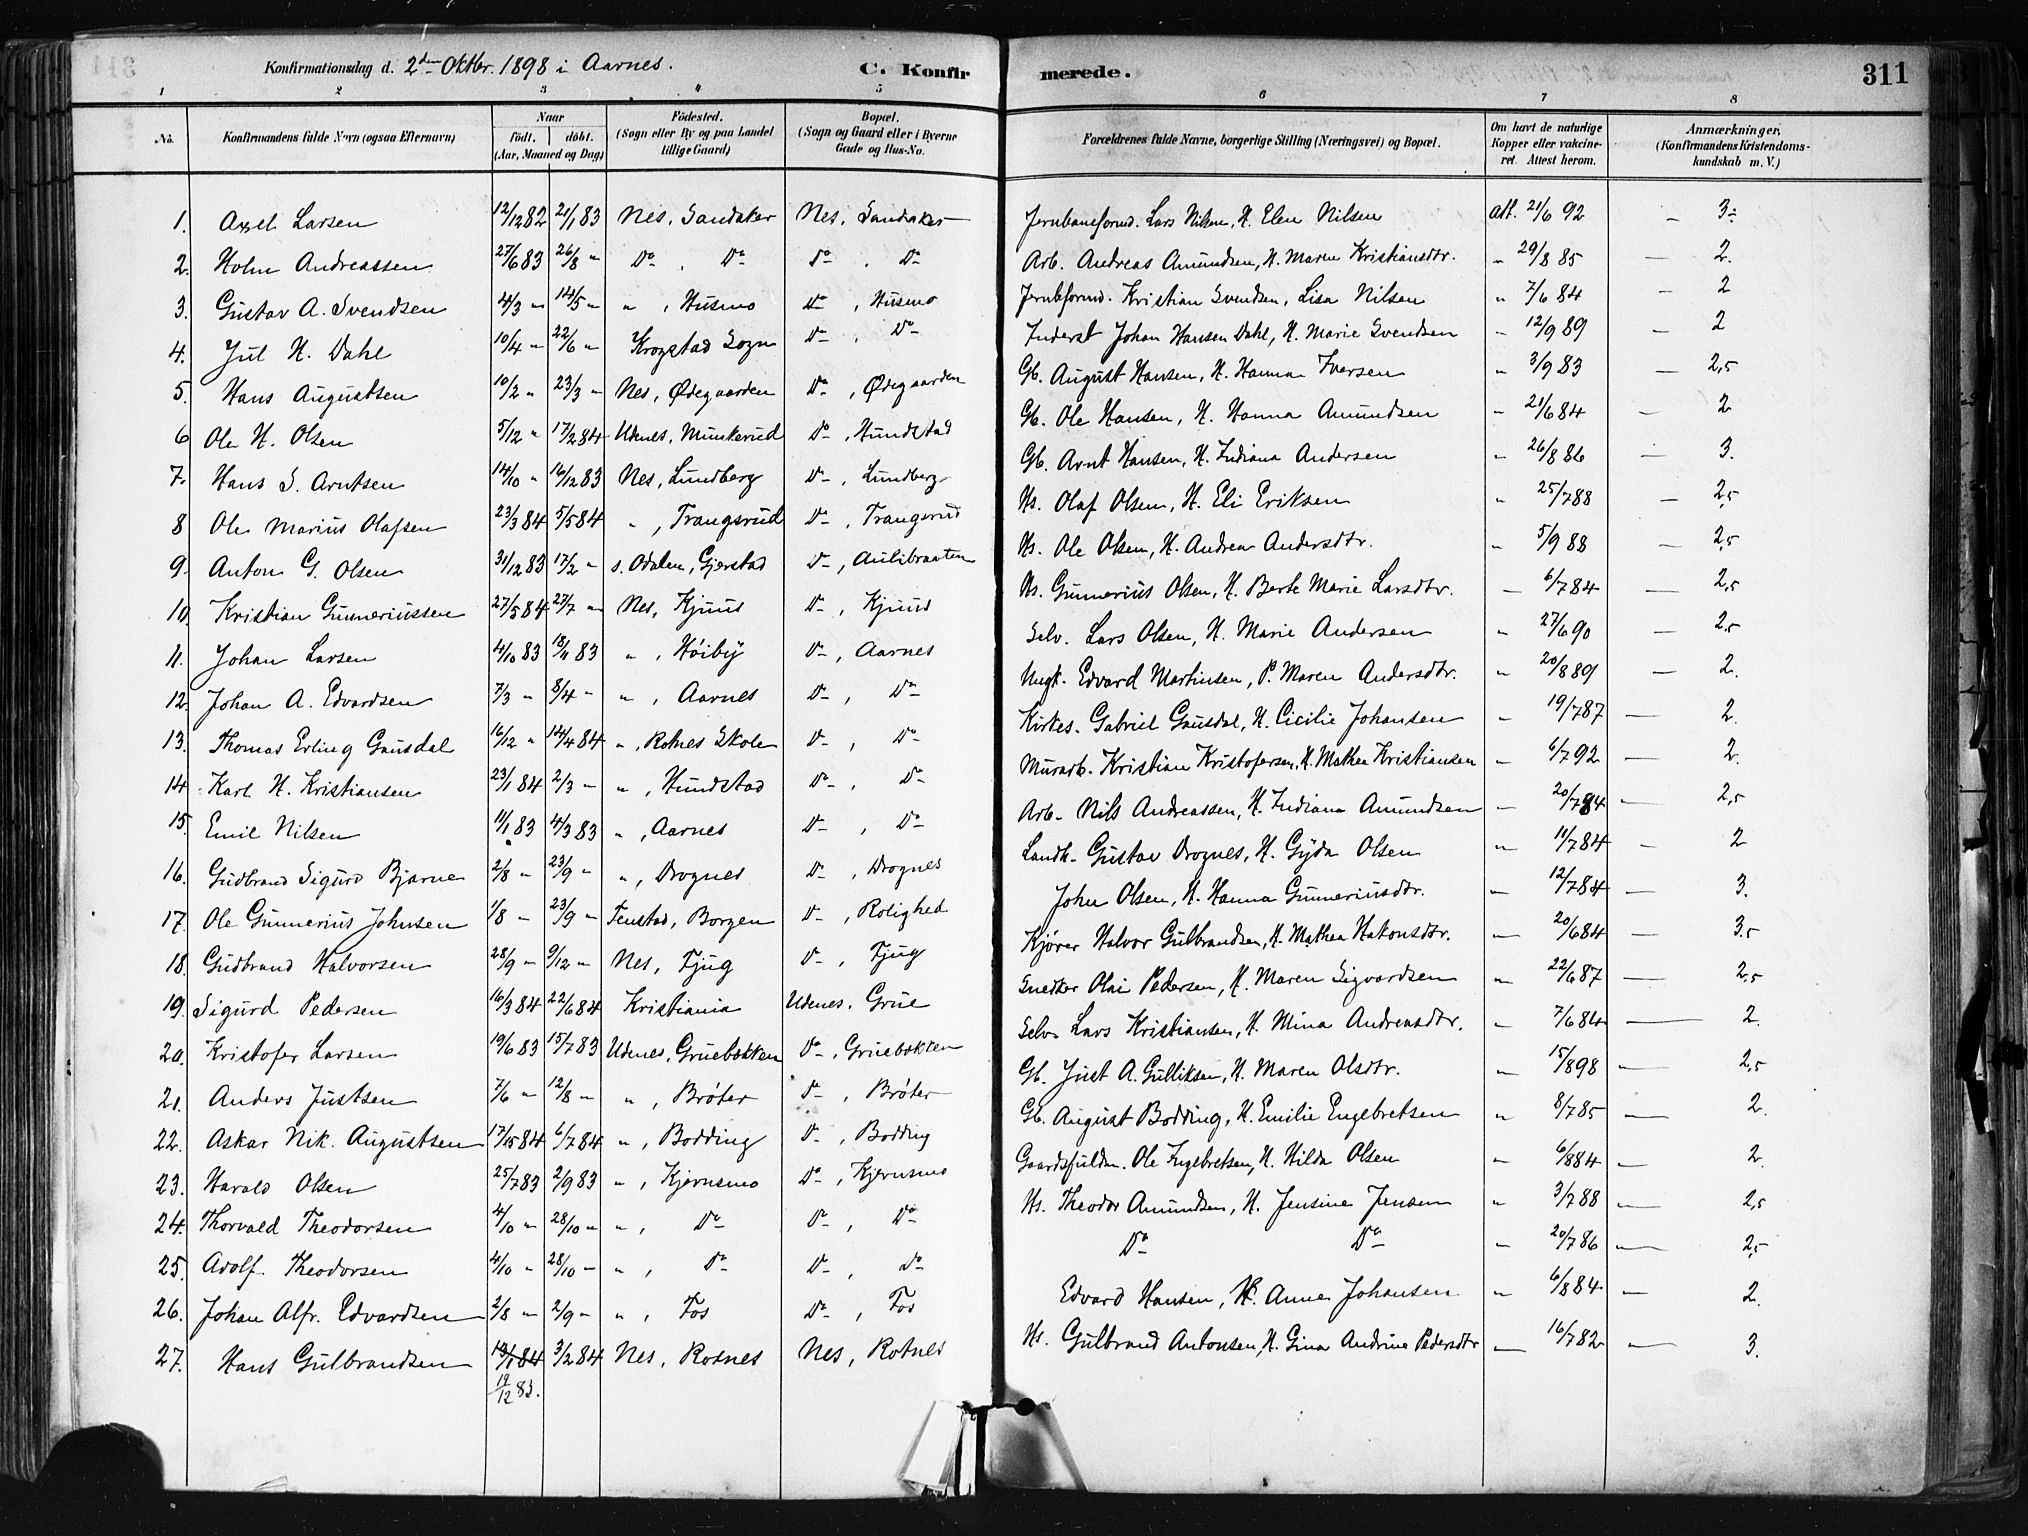 Konfirmationsdag d. 2den Oktbr. 1898 i Aarnes. C. Konfirmerede. 311
1 2 3 4 5 6 7 8
No. Konfirmandens fulde Navn (ogsaa Efternavn) Naar födt. döbt. (Aar, Maaned og Dag) Födested. (Sogn eller By og paa Landet tillige Gaard) Bopæl. (Sogn og Gaard eller i Byerne Gade og Hus-No. Forældrenes fulde Navne, borgerlige Stilling (Næringsvei) og Bopæl. Om havt de naturlige Kopper eller vakcineret. Attest herom. Anmærkninger. (Konfirmandens Kristendomskundskab m. V.)
1. Axel Larsen 12/12 82 21/1 83 Nes, Sandaker Nes, Sandaker Jernbaneformd. Lars Nilsen, H. Elen Nilsen Att. 21/6 92 — 3÷
2. Holm Andreassen 27/6 83 26/8 " Do , Do Do , Do Arb. Andreas Amundsen, H. Maren Kristiansdtr. " 29/8 85 — 2.
3. Gustav A. Svendsen 4/3 " 14/5 " " , Husmo Do , Husmo Jernbformd. Kristian Svendsen, Lisa Nilsen " 7/6 84 — 2
4. Jul H. Dahl 10/4 " 22/6 " Krogstad Sogn Do , Do Inderst Johan Hansen Dahl, H. Marie Svendsen " 12/9 89 — 2
5. Hans Augustsen 10/2 " 23/3 " Nes, Ødegaarden Do , Ødegaarden Gb. August Hansen, H. Hanna Iversen " 3/9 83 — 2,5
6 Ole H. Olsen 5/12 " 17/2 84 Udnes, Munkerud Do , Hundstad Gb. Ole Hansen, H. Hanna Amundsen " 21/6 84 — 2
7. Hans S. Arntsen 14/10 " 16/12 83 Nes, Lundberg Do , Lundberg Gb. Arnt Hansen, H. Indiana Andersen " 26/8 86 — 3.
8 Ole Marius Olafsen 23/3 84 5/5 84 " , Trangsrud Do , Trangsrud Hs. Olaf Olsen, H. Eli Eriksen " 25/7 88 — 2,5
9. Anton G. Olsen 31/12 83 17/2 " s. Odalen, Gjerstad Do , Aulibraaten Hs. Ole Olsen, H. Andrea Andersdtr. " 5/9 88 — 2,5
10. Kristian Gunneriussen 27/5 84 27/7 " Nes, Kjuus Do , Kjuus Hs. Gunnerius Olsen, H. Berte Marie Larsdtr. — 6/7 84 — 2,5
11. Johan Larsen 4/10 83 18/11 83 " , Höiby Do , Aarnes Selv. Lars Olsen, H. Marie Andersen " 27/6 90 — 2.5
12. Johan A. Edvardsen 7/3 " 8/4 " " , Aarnes Do , Do Ungk. Edvard Martinsen, P. Maren Andersdtr. " 20/8 89 — 2.
13. Thomas Erling Gausdal 16/12 " 14/4 84 " , Rotnes Skole Do , Do Kirkes. Gabriel Gausdal, H. Cicilie Johansen — 19/7 87 — 2.
14 Karl H. Kristiansen 23/1 84 2/3 — " , Hundstad Do , Do Murarb. Kristian Kristofersen, H. Mathea Kristiansen — 6/7 92 — 2.
15. Emil Nilsen 11/1 83 4/3 83 " , Aarnes Do , Do Arb. Nils Andreassen, H. Indiana Amundsen — 20/7 84 — 2,5
16. Gudbrand Sigurd Bjarne 2/8 — 23/9 " " , Drognes Do , Drognes Landh. Gustav Drognes, H. Gyda Olsen " 11/7 84 — 2
17. Ole Gunnerius Johnsen 1/8 — 23/9 — Fenstad, Borgen Do , Rolighed John Olsen, H. Hanna Gunneriusdtr. — 12/7 84 — 3.
18. Gudbrand Halvorsen 28/9 — 9/12 — Nes, Fjug Do , Fjug Kjörer Halvor Gulbrandsen, H. Mathea Hakonsdtr. — 20/6 84 — 3.5
19. Sigurd Pedersen 16/3 84 22/6 84 Kristiania Udnes. Grue Snedker Olai Pedersen, H. Maren Sigvardsen " 22/6 87 — 2,5
20. Kristofer Larsen 19/6 83 15/7 83 Udnes, Gruebakken Do , Gruebakken Selv. Lars Kristiansen, H. Mina Andreasdtr. — 7/6 84 — 2.
21. Anders Justsen 7/6 " 12/8 — " , Bröter Do , Bröter Gb. Just A. Gulliksen, H. Maren Olsdtr. " 15/8 98 — 2,5
22. Askar Nik. Augustsen 17/5 84 6/7 84 " , Bodding Do , Bodding Gb. August Bodding, H. Emilie Engebretsen " 8/7 85 — 2.
23. Harald Olsen 25/7 83 2/9 83 " , Kjernsmo Do , Kjernsmo Gaardsfuldm. Ole Ingebretsen, H. Hilda Olsen " 6/8 84 — 2.
24. Thorvald Theodorsen 4/10 " 28/10 " " , Do Do , Do Hs. Theodor Amundsen, H. Jensine Jensen " 3/7 88 — 2,5
25. Adolf Theodorsen 4/10 — 28/10 — " , Do Do , Do Do Do " 20/7 86 — 2,5
26. Johan Alfr. Edvardsen 2/8 — 2/9 — " , Fos Do , Fos Edvard Hansen, H. Anne Johansen " 6/8 84 — 2.
27. Hans Gulbrandsen 19/1 84 3/2 84 Nes, Rotnes Nes, Rotnes Hs. Gulbrand Antonsen, H. Gina Andrine Pedersdtr — 16/7 82 — 3.
19/12 83.